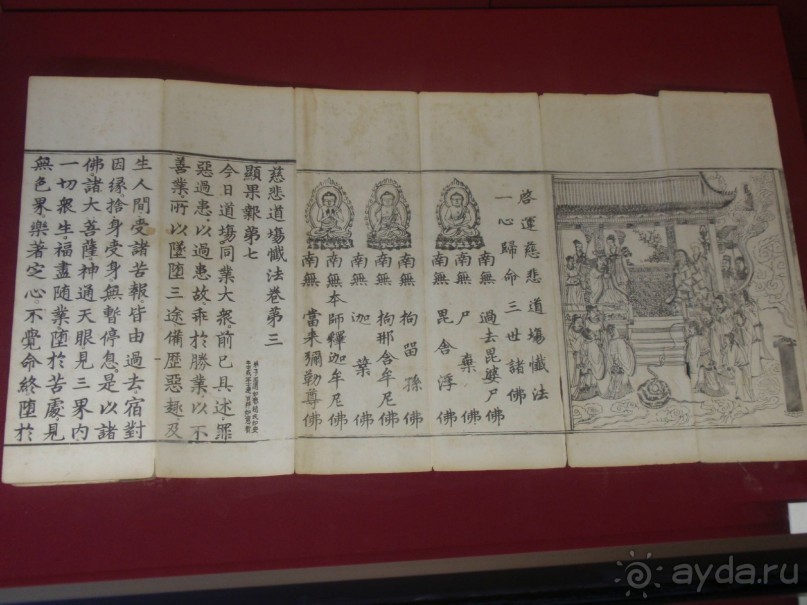 啓運慈悲道塲懺法
一心歸命三世諸佛
南無過去毘婆尸佛
南無尸棄佛
南無毘舎浮佛
南無拘留孫佛
南無拘那含牟尼佛
南無迦葉佛
南無本師釋迦牟尼佛
南無當來彌勒尊佛
慈悲道塲懺法卷第三
顯果報第七
今日道塲同業大衆前已具述罪
惡過患以過患故乖於勝業以不
善業所以墜墮三途備歷惡趣及
生人間受諸苦報皆由過去宿對
因緣捨身受身無暫停息是以諸
佛諸大菩薩神通天眼見三界内
一切衆生福盡隨業墮於苦處見
無色界樂著定心不覺命終墮於
ayda.ru